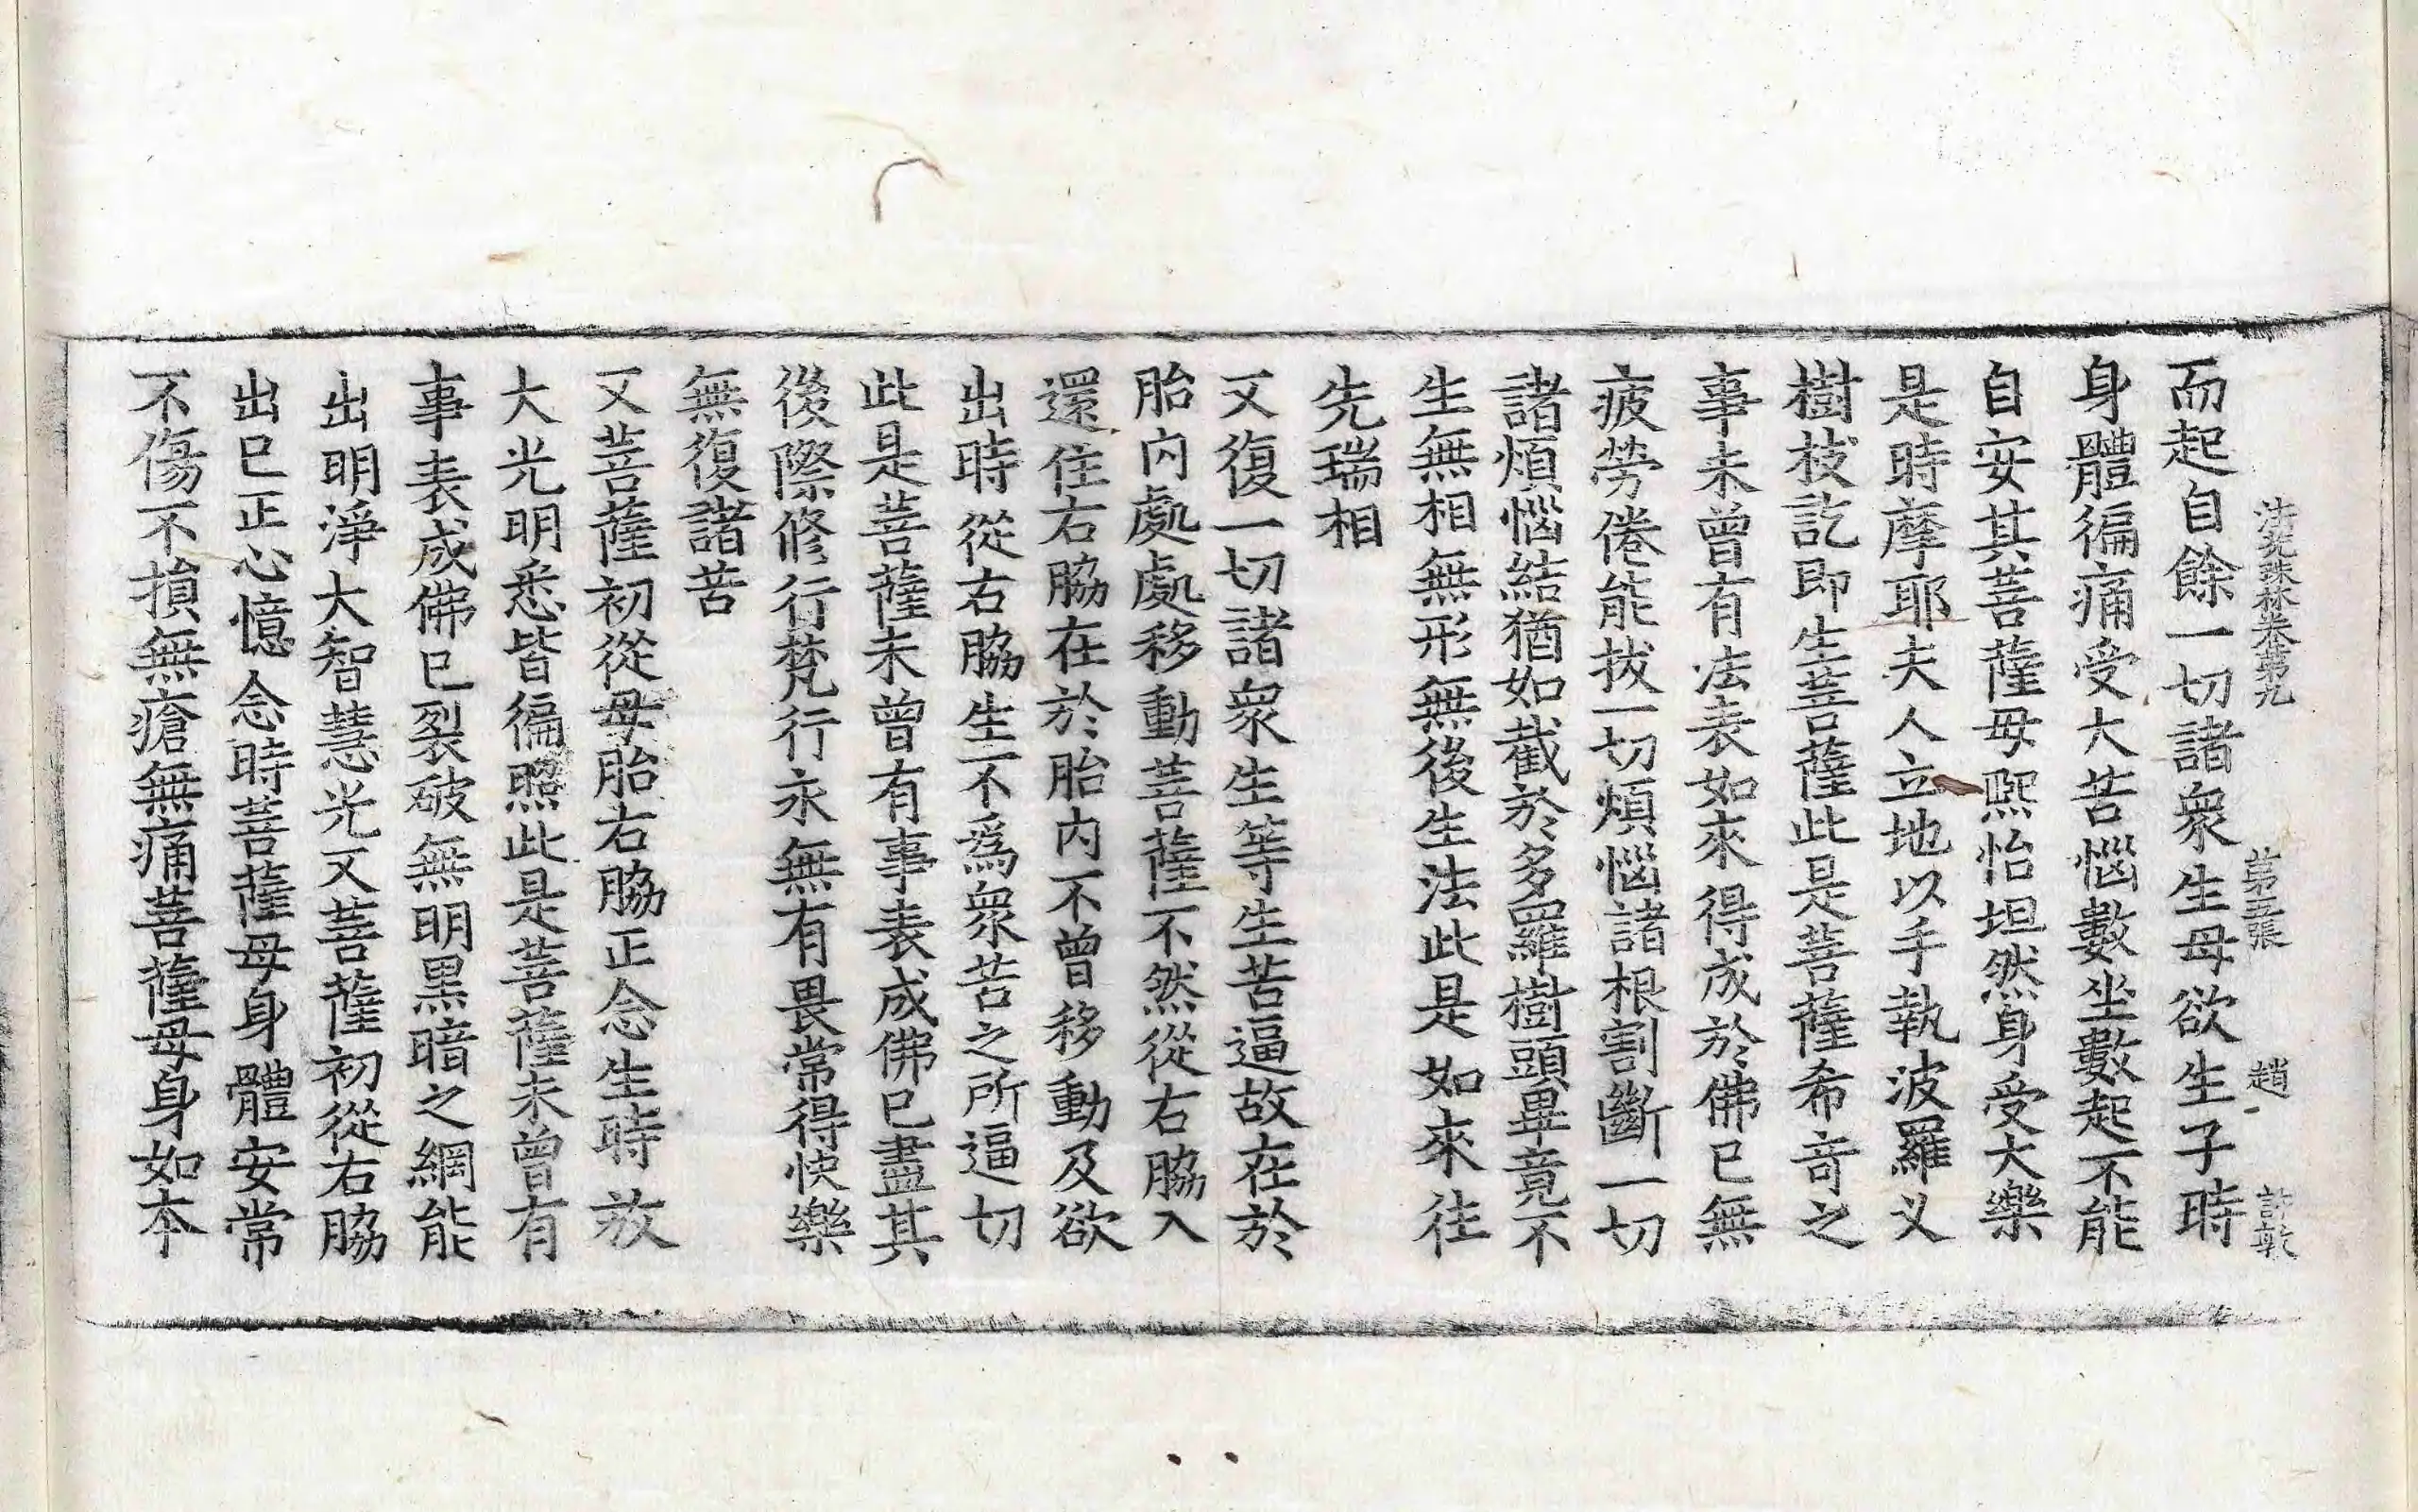 法苑珠林卷第九 第五張 趙 許敦
而起自餘一切諸衆生母欲生子時
身體徧痛受大苦惱數坐數起不能
自安其菩薩母熈怡坦然身受大樂
是時摩耶夫人立地以手執波羅乂
樹枝訖即生菩薩此是菩薩希竒之
事未曾有法表如來得成於佛已無
疲勞倦能拔一切煩惱諸根割斷一切
諸煩惱結猶如截於多羅樹頭畢竟不
生無相無形無後生法此是如來往
先瑞相
又復一切諸衆生等生苦逼故在於
胎内處處移動菩薩不然從右脇入
還住右脇在於胎内不曾移動及欲
出時從右脇生不爲衆苦之所逼切
此是菩薩未曾有事表成佛已盡其
後際修行梵行永無有畏常得快樂
無復諸苦
又菩薩初從母胎右脇正念生時放
大光明悉皆徧照此是菩薩未曾有
事表成佛已裂破無明黑暗之網能
出明淨大智慧光又菩薩初從右脇
出已正心憶念時菩薩母身體安常
不傷不損無瘡無痛菩薩母身如本